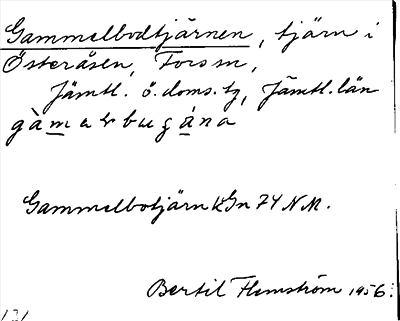 Gammelbodtjärnen, tjärn i
Österåsen, Fors sn,
Jämtl. ö. doms.tg, Jämtl. län
Gammelbotjärn kGn 74 NM.
Bertil Flemström 1956.